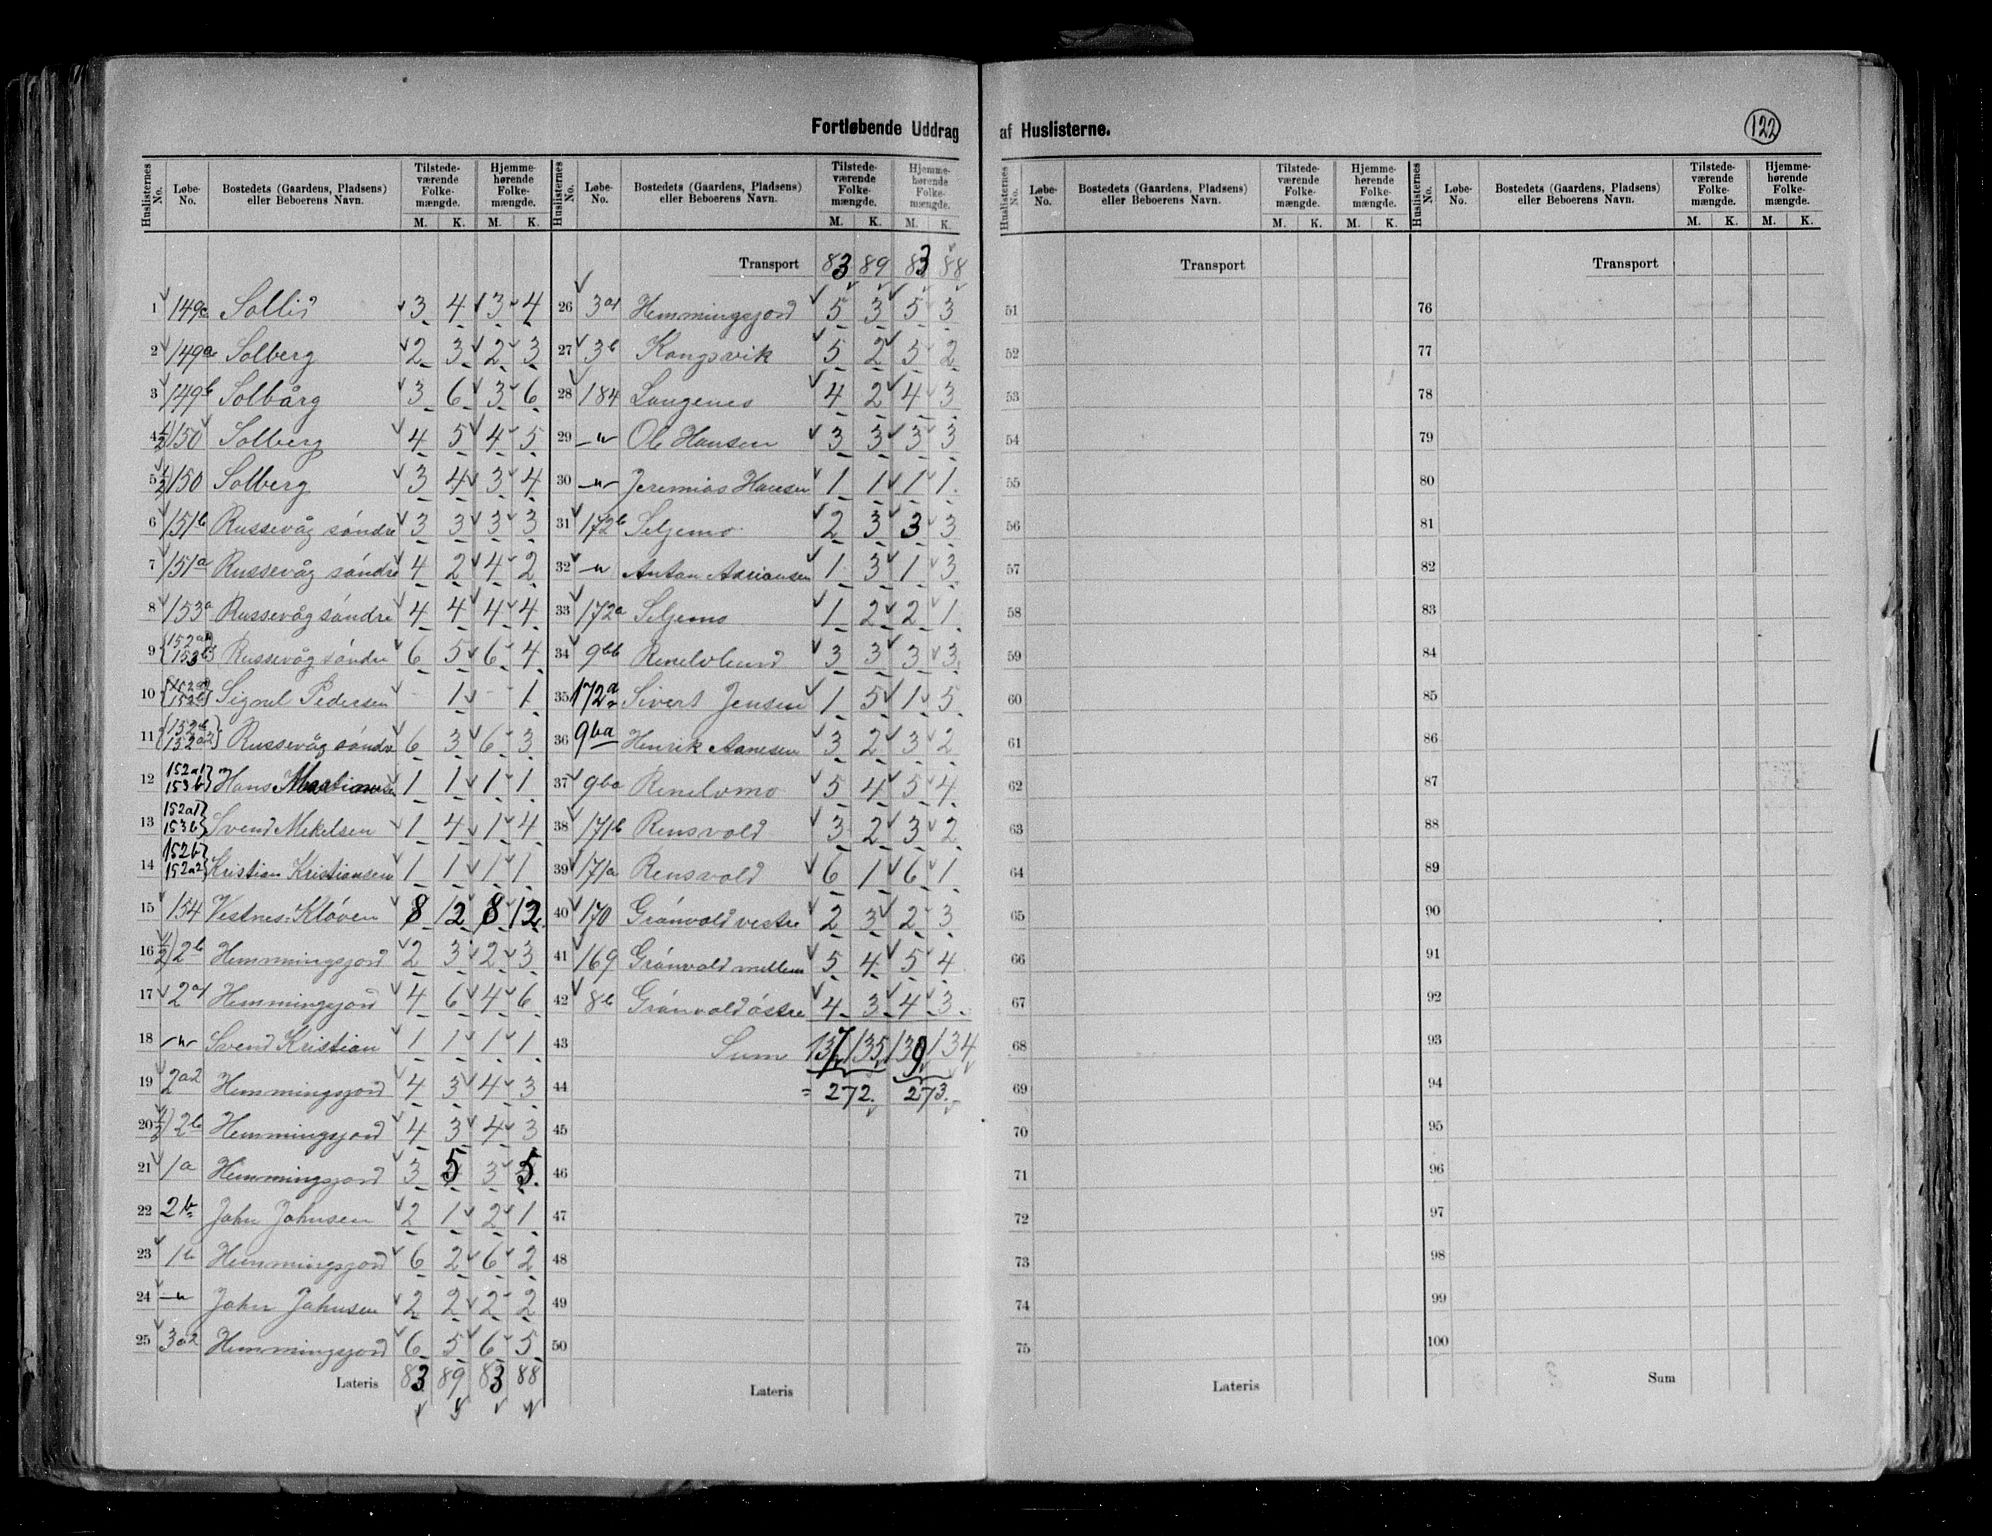 Fortløbende Uddrag af Huslisterne.
122
Huslisternes No. | Løbe-No. | Bostedets (Gaardens, Pladsens) eller Beboerens Navn. | Tilstedeværende Folkemængde. M. K. | Hjemmehørende Folkemængde. M. K.
1 149c Sollid 3 4 3 4
2 149a Solberg 2 3 2 3
3 149b Solbårg 3 6 3 6
4 1/2) 150 Solberg 4 5 4 5
5 1/2) 150 Solberg 3 4 3 4
6 151b Russevåg söndre 3 3 3 3
7 151a Russevåg söndre 4 2 4 2
8 153a Russevåg söndre 4 4 4 4
9 {152a1 153b} Russevåg söndre 6 5 6 4
10 Signel Pedersen - 1 - 1
11 {152b 152a2} Russevåg söndre 6 3 6 3
12 152a1 153b} Hans 1 1 1 1
13 152a1 153b} Svend Mekelsen 1 4 1 4
14 152b 152a2} Kristian Kristiansen 1 1 1 1
15 154 Vestnes-Klöven 8 12 8 12
16 1/2) 2b Hemmingsjord 2 3 2 3
17 2a1 Hemmingsjord 4 6 4 6
18 -"- Svend Kristian 1 1 1 1
19 2a2 Hemmingsjord 4 3 4 3
20 1/2) 2b Hemmingsjord 4 3 4 3
21 1a Hemmingsjord 3 5 3 5
22 2b John Johnsen 2 1 2 1
23 1b Hemmingsjord 6 2 6 2
24 -"- John Johnsen 2 2 2 2
25 3a2 Hemmingsjord 6 5 6 5
Lateris 83 89 83 88
Huslisternes No. | Løbe-No. | Bostedets (Gaardens, Pladsens) eller Beboerens Navn. | Tilstedeværende Folkemængde. M. K. | Hjemmehørende Folkemængde. M. K.
Transport 83 89 83 88
26 3a1 Hemmingsjord 5 3 5 3
27 3b Kongsvik 5 2 5 2
28 184 Langenes 4 2 4 3
29 -"- Ole Hansen 3 3 3 3
30 -"- Jeremias Hansen 1 1 1 1
31 172b Seljemo 2 3 3 3
32 -"- Anton Adriansen 1 3 1 3
33 172a Seljemo 1 2 2 1
34 9bb Renelvlund 3 3 3 3
35 172a Sivert Jensen 1 5 1 5
36 9ba Henrik Aanesen 3 2 3 2
37 9ba Renelvmo 5 4 5 4
38 171b Rensvold 3 2 3 2
39 171a Rensvold 6 1 6 1
40 170 Grönvold vestre 2 3 2 3
41 169 Grönvold mellem 5 4 5 4
42 8b Grönvold östre 4 3 4 3
43 Sum 137 135 139 134
44 = 272. 273.
45
46
47
48
49
50
Lateris
Huslisternes No. | Løbe-No. | Bostedets (Gaardens, Pladsens) eller Beboerens Navn. | Tilstedeværende Folkemængde. M. K. | Hjemmehørende Folkemængde. M. K.
Transport
51
52
53
54
55
56
57
58
59
60
61
62
63
64
65
66
67
68
69
70
71
72
73
74
75
Lateris
Huslisternes No. | Løbe-No. | Bostedets (Gaardens, Pladsens) eller Beboerens Navn. | Tilstedeværende Folkemængde. M. K. | Hjemmehørende Folkemængde. M. K.
Transport
76
77
78
79
80
81
82
83
84
85
86
87
88
89
90
91
92
93
94
95
96
97
98
99
100
Sum